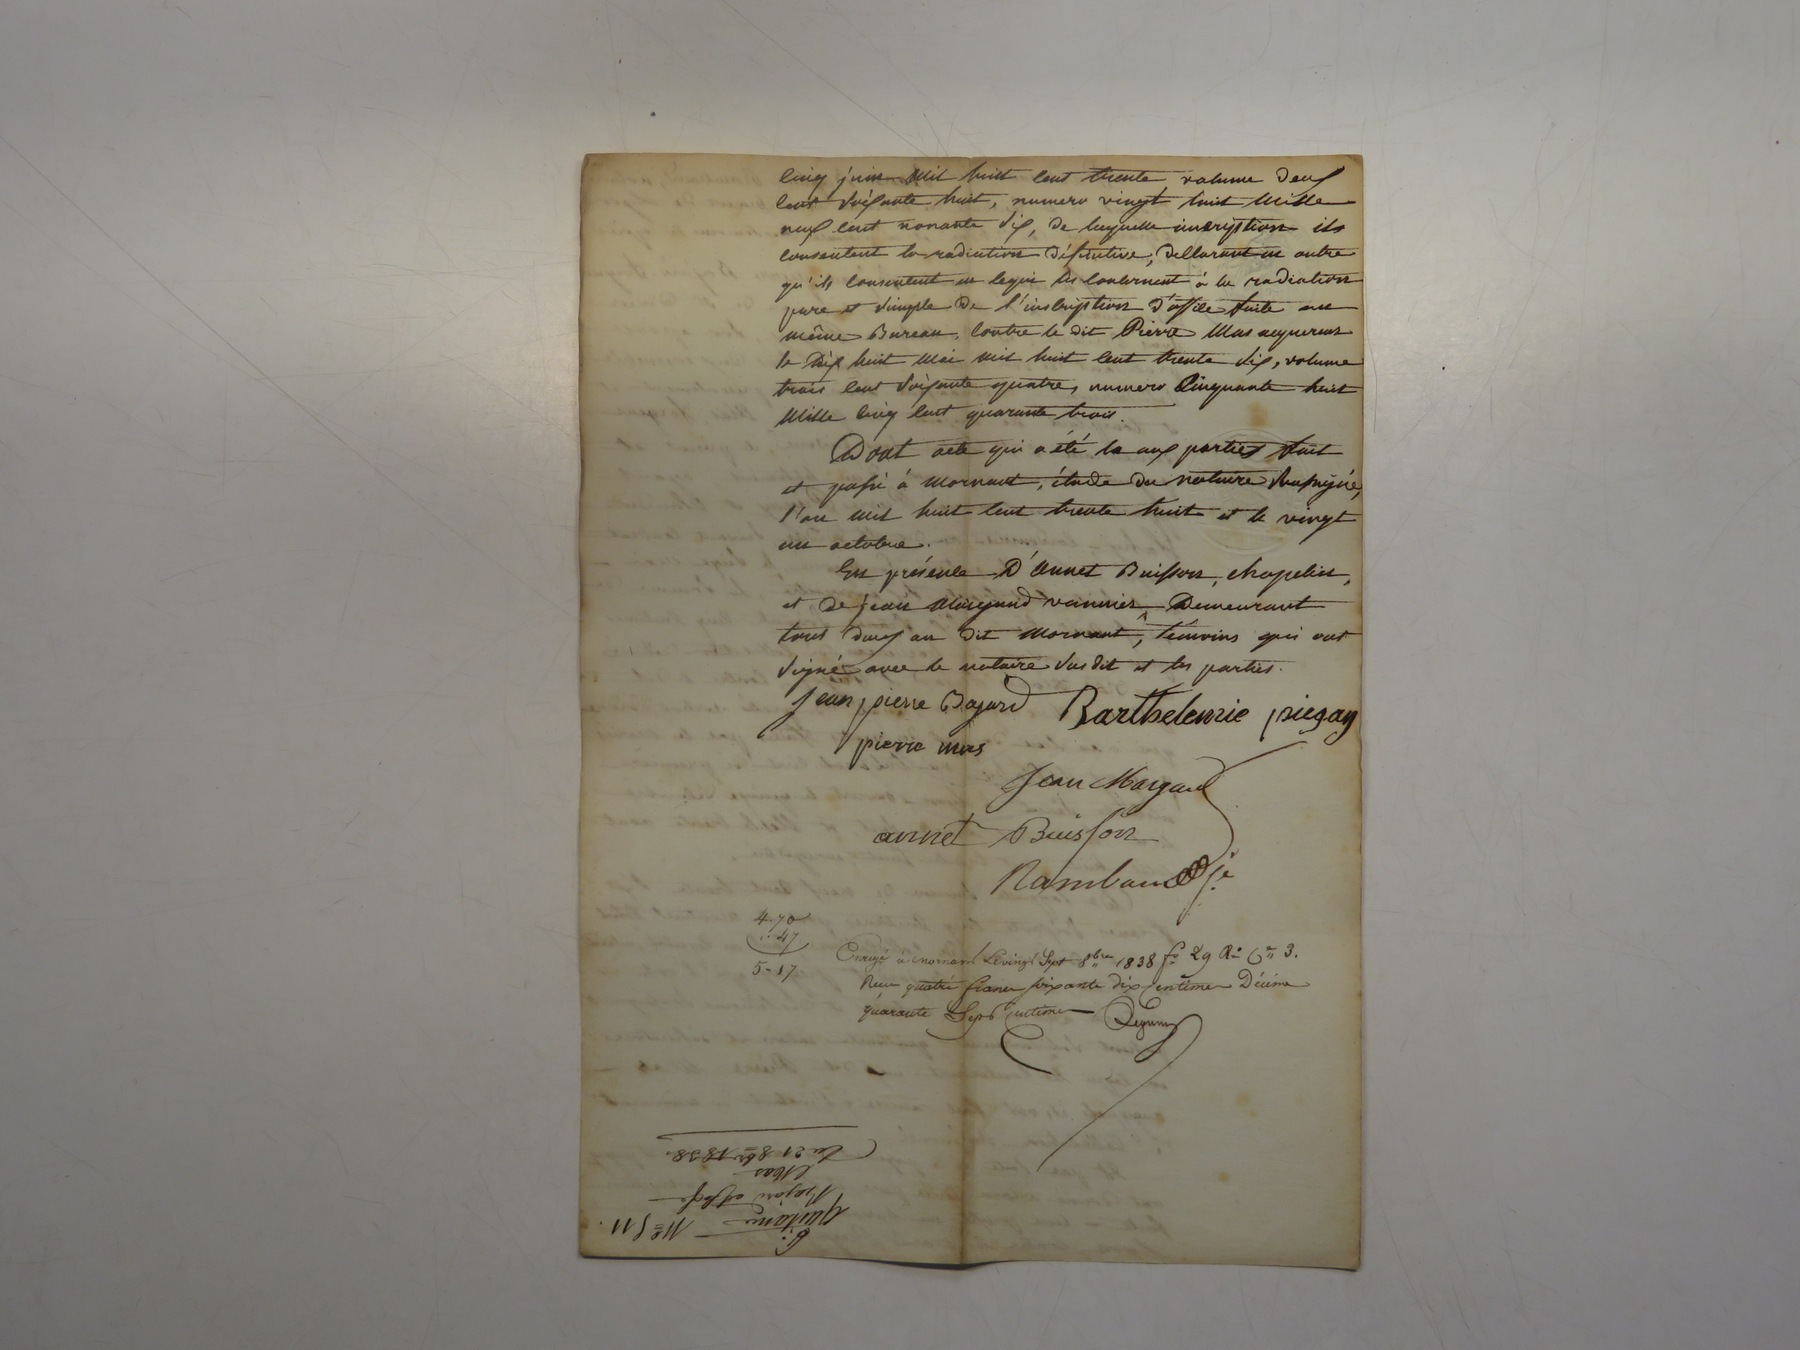 cinq juin mil huit cent trente volume deux
cent soixante huit, numero vingt huit mille
neuf cent nonante six, de laquelle inscription ils
consentent la radiation définitive, déclarant en outre
qu'ils consentent en ce qui les concernent à la radiation
pure et simple de l'inscription d'office faite au
même Bureau, contre le dit Pierre Mas acquereur
le dix huit mai mil huit cent trente six, volume
trois cent soixante quatre, numero cinquante huit
mille cinq cent quarante trois.
Dont acte qui a été lu aux parties fait
et passé à Mornant, étude du notaire soussigné,
l'an mil huit cent trente huit et le vingt
un octobre.
En présence D'Annet Buisson, chapelier,
et de jean Margand vannier, Demeurant
tous deux au dit Mornant, témoins qui ont
signé avec le notaire susdit et les parties.
Jean pierre Bajard Barthelemie piegay
pierre mas
Jean Margand
annet Buisson
Rambaud je
4.70
47
5-17
Enrgé à mornant Le vingt Sept 8bre 1838 fo 29 Ro Ces 3.
Reçu quatre francs soixante dix centimes Décime
quarante Sept centimes
No 511.
Quittance
Bajard
Mas
Du 21 8bre 1838.